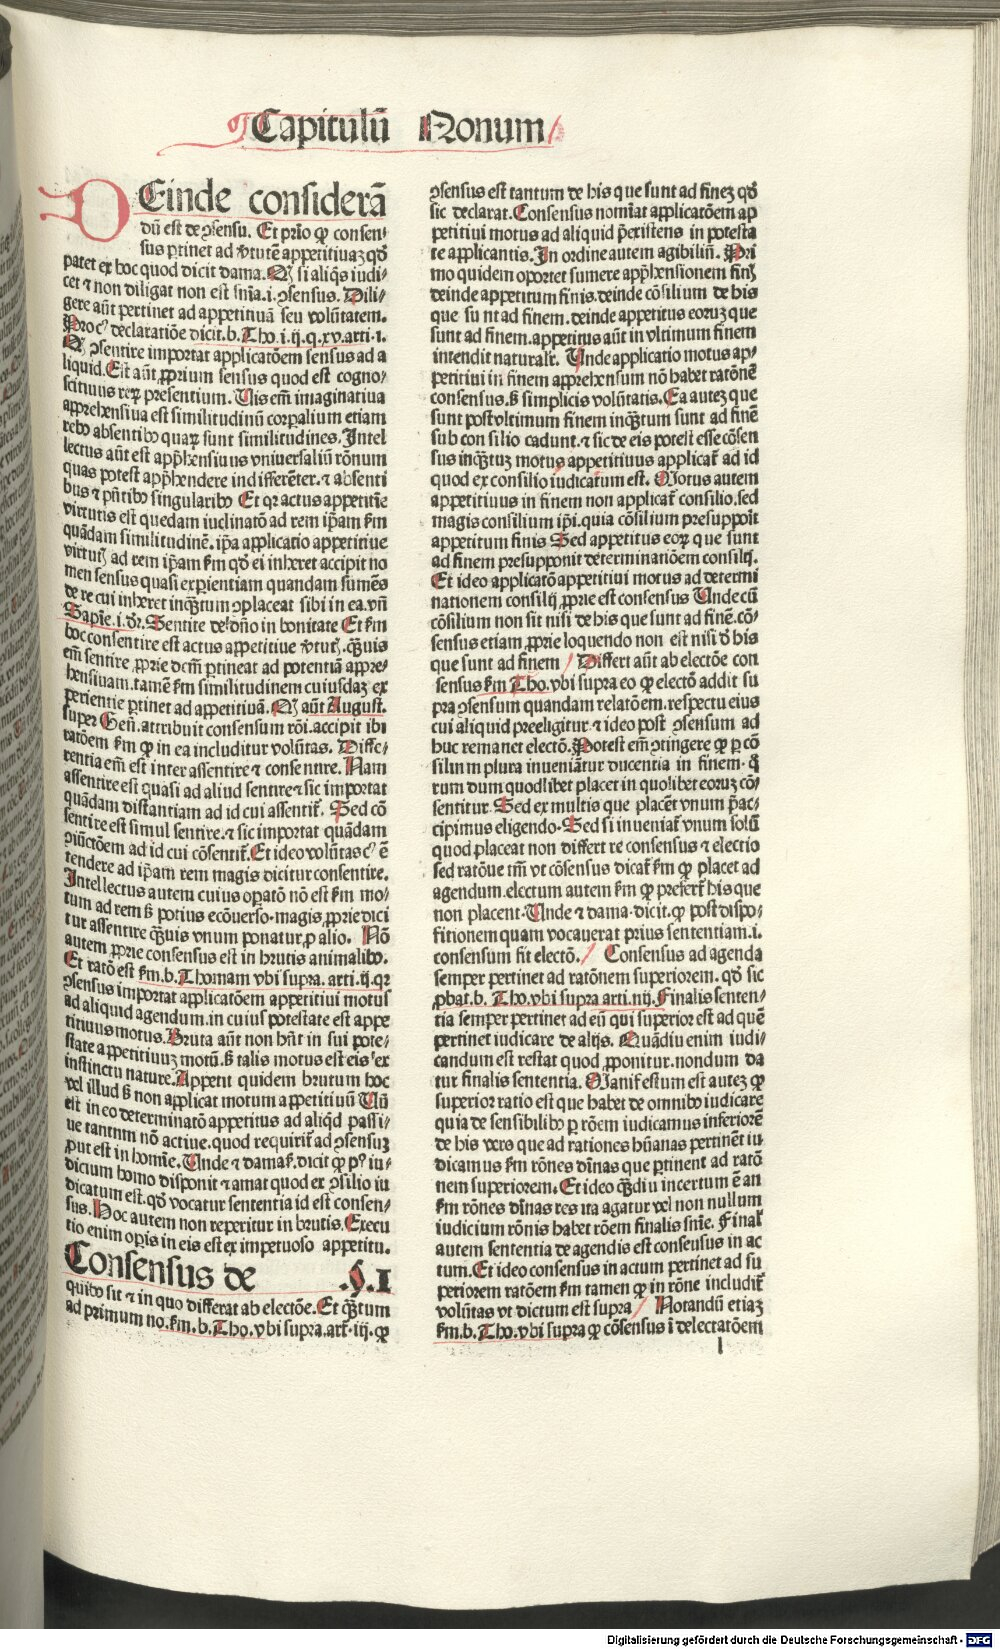 Capitulū Nonum
DEinde considerā
dū est de ↄsensu. Et prīo ꝙ consen-
sus ꝑtinet ad ꝟtutē appetitiuaꝫ qḋ
patet ex hoc quod dicit dama. Qꝫ si aliq̄s iudi-
cet ⁊ non diligat non est sn̄ia.i.ↄsensus. Dili-
gere aūt pertinet ad appetitiuā seu volūtatem.
Pro cꝰ declaratiōe dicit.b.Tho.i.ij.q.xv.arti.i.
Qꝫ ↄsentire importat applicatōem sensus ad a
liquid. Est aūt ꝓprium sensus quod est cogno-
scitiuus reꝝ presentium. Uis em̄ imaginatiua
apprehensiua est similitudinū corꝑalium etiam
rebꝰ absentibꝰ quaꝝ sunt similitudines. Intel
lectus aūt est app̄hensiuus vniuersaliū rōnum
quas potest app̄hendere indifferēter.⁊ absenti
bus ⁊ pn̄tibꝰ singularibꝰ Et qꝛ actus appetitie
virtutis est quedam iuclinatō ad rem ip̄am ẜm
quādam similitudinē. ip̄a applicatio appetitiue
virtutꝭ ad rem ip̄am ẜm qḋ ei inheret accipit no
men sensus quasi experientiam quandam sumēs
de re cui inheret inqꝫtum ↄplaceat sibi in ea.vn̄
Sapīe.i.dꝛ. Sentite de dn̄o in bonitate Et ẜm
hoc consentire est actus appetitiue ꝟtutꝭ. qꝫuis
em̄ sentire ꝓprie dcm̄ ꝑtineat ad potentiā appre-
hensiuam.tamē ẜm similitudinem cuiusdaꝫ ex
perientie ꝑtinet ad appetitiuā. Qꝫ aūt August.
super Geñ. attribuit consensum rōi. accipit ibi
ratōem ẜm ꝙ in ea includitur volūtas. Diffe-
rentia em̄ est inter assentire ⁊ consentire. Nam
assentire est quasi ad aliud sentire ⁊ sic importat
quādam distantiam ad id cui assentiť. Sed cō
sentire est simul sentire.⁊ sic importat quādam
ↄiūctōem ad id cui cōsentiť. Et ideo volūtas cꝰ ē
tendere ad ip̄am rem magis dicitur consentire.
Intellectus autem cuius oꝑatō nō est ẜm mo-
tum ad rem ß potius ecōuerso.magis ꝓprie dici
tur assentire qꝫuis vnum ponatur ꝓ alio. Nō
autem ꝓprie consensus est in brutis animalibꝰ.
Et ratō est ẜm.b.Thomam vbi supra.arti.ij.qꝛ
ↄsensus importat applicatōem appetitiui motus
ad aliquid agendum.in cuius potestate est appe
titiuus motus. Bruta aūt non hn̄t in sui pote-
state appetitiuuꝫ motū.ß talis motus est eis ex
instinctu nature. Appetit quidem brutum hoc
vel illud ß non applicat motum appetitiuū Uñ
est in eo determinatō appetitus ad aliqḋ passi-
ue tantum nō actiue.quod requiriť ad ↄsensuꝫ
ꝓut est in homīe. Unde ⁊ damaẜ.dicit ꝙ pꝰ iu-
dicium homo disponit ⁊ amat quod ex ↄsilio iu
dicatum est.qḋ vocatur sententia id est consen-
sus. Hoc autem non reperitur in brutis. Execu
tio enim oꝑis in eis est ex impetuoso appetitu.
Consensus de .§.1
quibꝰ sit ⁊ in quo differat ab electōe. Et qꝫtum
ad primum no.ẜm.b.Tho.vbi supra.art.iij.ꝙ
ↄsensus est tantum de his que sunt ad fineꝫ qḋ
sic declarat. Consensus nomīat applicatōem ap
petitiui motus ad aliquid p̄existens in potesta
te applicantis. In ordine autem agibiliū. Pri
mo quidem oportet sumere app̄hensionem finꝭ
deinde appetitum finis.deinde cōsilium de his
que sunt ad finem.deinde appetitus eoruꝫ que
sunt ad finem.appetitus aūt in vltimum finem
intendit naturalť. Unde applicatio motus ap-
petitiui in finem apprehensum nō habet ratōnē
consensus.ß simplicis volūtatis. Ea auteꝫ que
sunt post vltimum finem inqꝫtum sunt ad finē
sub consilio cadunt.⁊ sic de eis potest esse cōsen
sus inqꝫtuꝫ motus appetitiuus applicať ad id
quod ex consilio iudicatum est. Motus autem
appetitiuus in finem non applicať consilio.sed
magis consilium ip̄i.quia cōsilium presupponit
appetitum finis Sed appetitus eoꝝ que sunt
ad finem presupponit determinatiōem consilij.
Et ideo applicatō appetitiui motus ad determi
nationem consilij ꝓprie est consensus Unde cū
cōsilium non sit nisi de his que sunt ad finē.cō-
sensus etiam ꝓprie loquendo non est nisi ꝺ his
que sunt ad finem / Differt aūt ab electōe con
sensus ẜm Tho.vbi supra eo ꝙ electō addit su
pra ↄsensum quandam relatōem.respectu eius
cui aliquid preeligitur.⁊ ideo post ↄsensum ad
huc remanet electō. Potest em̄ ↄtingere ꝙ ꝑ cō
silium plura inueniātur ducentia in finem. q̄
rum dum quodlibet placet in quolibet eoruꝫ cō-
sentitur. Sed ex multis que placēt vnum p̄ac-
cipimus eligendo. Sed si inueniať vnum solū
quod placeat non differt re consensus ⁊ electio
sed ratōne tm̄ vt cōsensus dicať ẜm ꝙ placet ad
agendum.electum autem ẜm ꝙ preferť his que
non placent. Unde ⁊ dama.dicit.ꝙ post dispo-
sitionem quam vocauerat prius sententiam.i.
consensum fit electō. / Consensus ad agenda
semper pertinet ad ratōnem superiorem. qḋ sic
ꝓbat.b. Tho.vbi supra arti.iiij. Finalis senten-
tia semper pertinet ad eū qui superior est ad quē
pertinet iudicare de alijs. Quādiu enim iudi-
candum est restat quod ꝓponitur.nondum da
tur finalis sententia. Manifestum est auteꝫ ꝙ
superior ratio est que habet de omnibꝰ iudicare
quia de sensibilibꝰ ꝑ rōem iudicamus inferiorē
de his vero que ad rationes hūanas pertinēt iu
dicamus ẜm rōnes diūnas que ꝑtinent ad ratō
nem superiorem. Et ideo qꝫdiu incertum ē an
ẜm rōnes diūnas res ita agatur vel non nullum
iudicium rōnis habet rōem finalis sn̄ie. Finaľ
autem sententia de agendis est consensus in ac
tum. Et ideo consensus in actum pertinet ad su
periorem ratōem ẜm tamen ꝙ in rōne includiť
volūtas vt dictum est supra / Notandū etiaꝫ
ẜm.b.Tho.vbi supra ꝙ cōsensus ī delectatōem
l
Digitalisierung gefördert durch die Deutsche Forschungsgemeinschaft - DFG